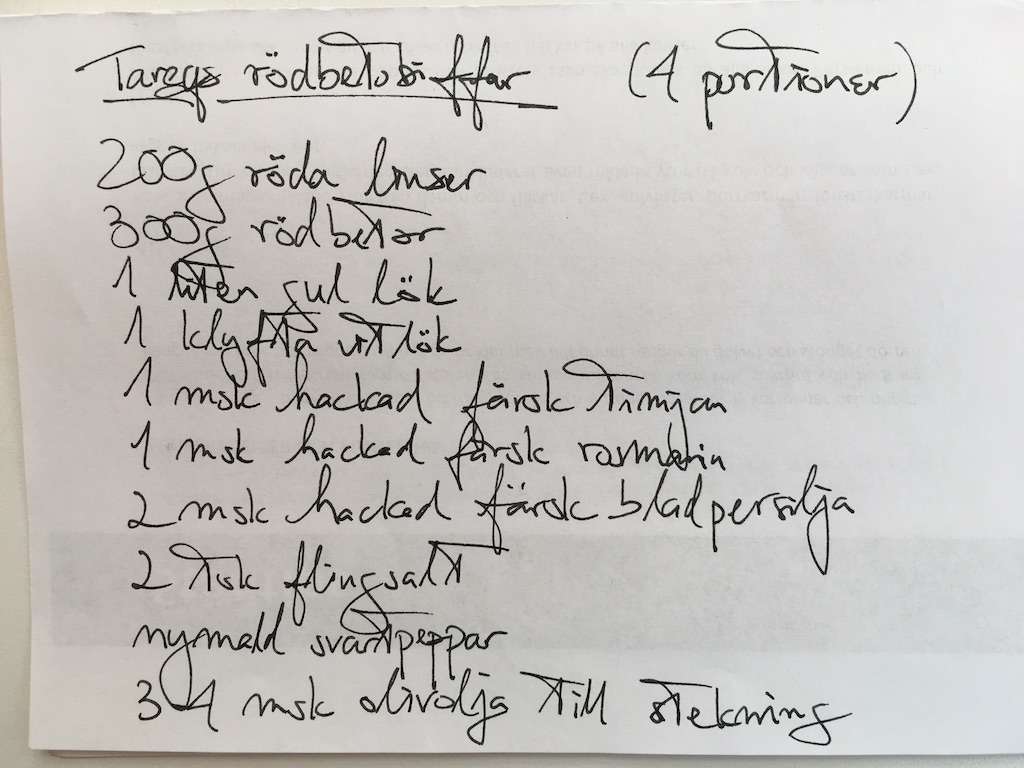 Tareqs rödbetsbiffar (4 portioner)
200g röda linser
300g rödbetor
1 liten gul lök
1 klyfta vitlök
1 msk hackad färsk timjan
1 msk hackad färsk rosmarin
2 msk hackad färsk bladpersilja
2 tsk flingsalt
nymald svartpeppar
3-4 msk olivolja till stekning